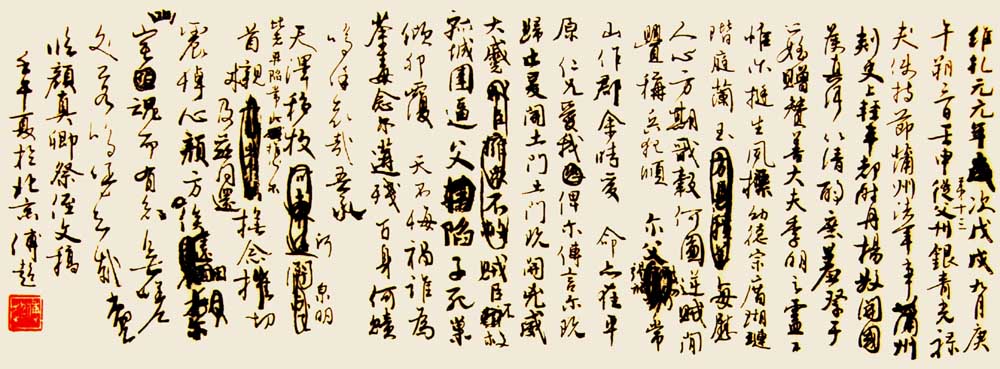 維乾元元年歲次戊戌九月庚
午朔三日壬申從父州銀青光祿
第十三
夫使持節蒲州諸軍事蒲州
刺史上輕車都尉丹楊縣開國
侯真卿以清酌庶羞祭于
亡姪贈贊善大夫季明之靈
惟尔挺生夙標幼德宗廟瑚璉
階庭蘭玉每慰
人心方期戩穀何圖逆賊間
釁稱兵犯順尔父常
山作郡余時受命亦在平
原仁兄愛我俾尔傳言尔既
歸止爰開土門土門既開兇威
大蹙賊臣不救
孤城圍逼父陷子死巢
傾卵覆天不悔禍誰為
荼毒念尔遘殘百身何贖
嗚呼哀哉吾承
天澤移牧河關泉明
比者再陷常山攜尔
首櫬及茲同還撫念摧切
震悼心顏方俟
魂而有知無嗟久客
嗚呼哀哉
臨顏真卿祭侄文稿
夏於北京